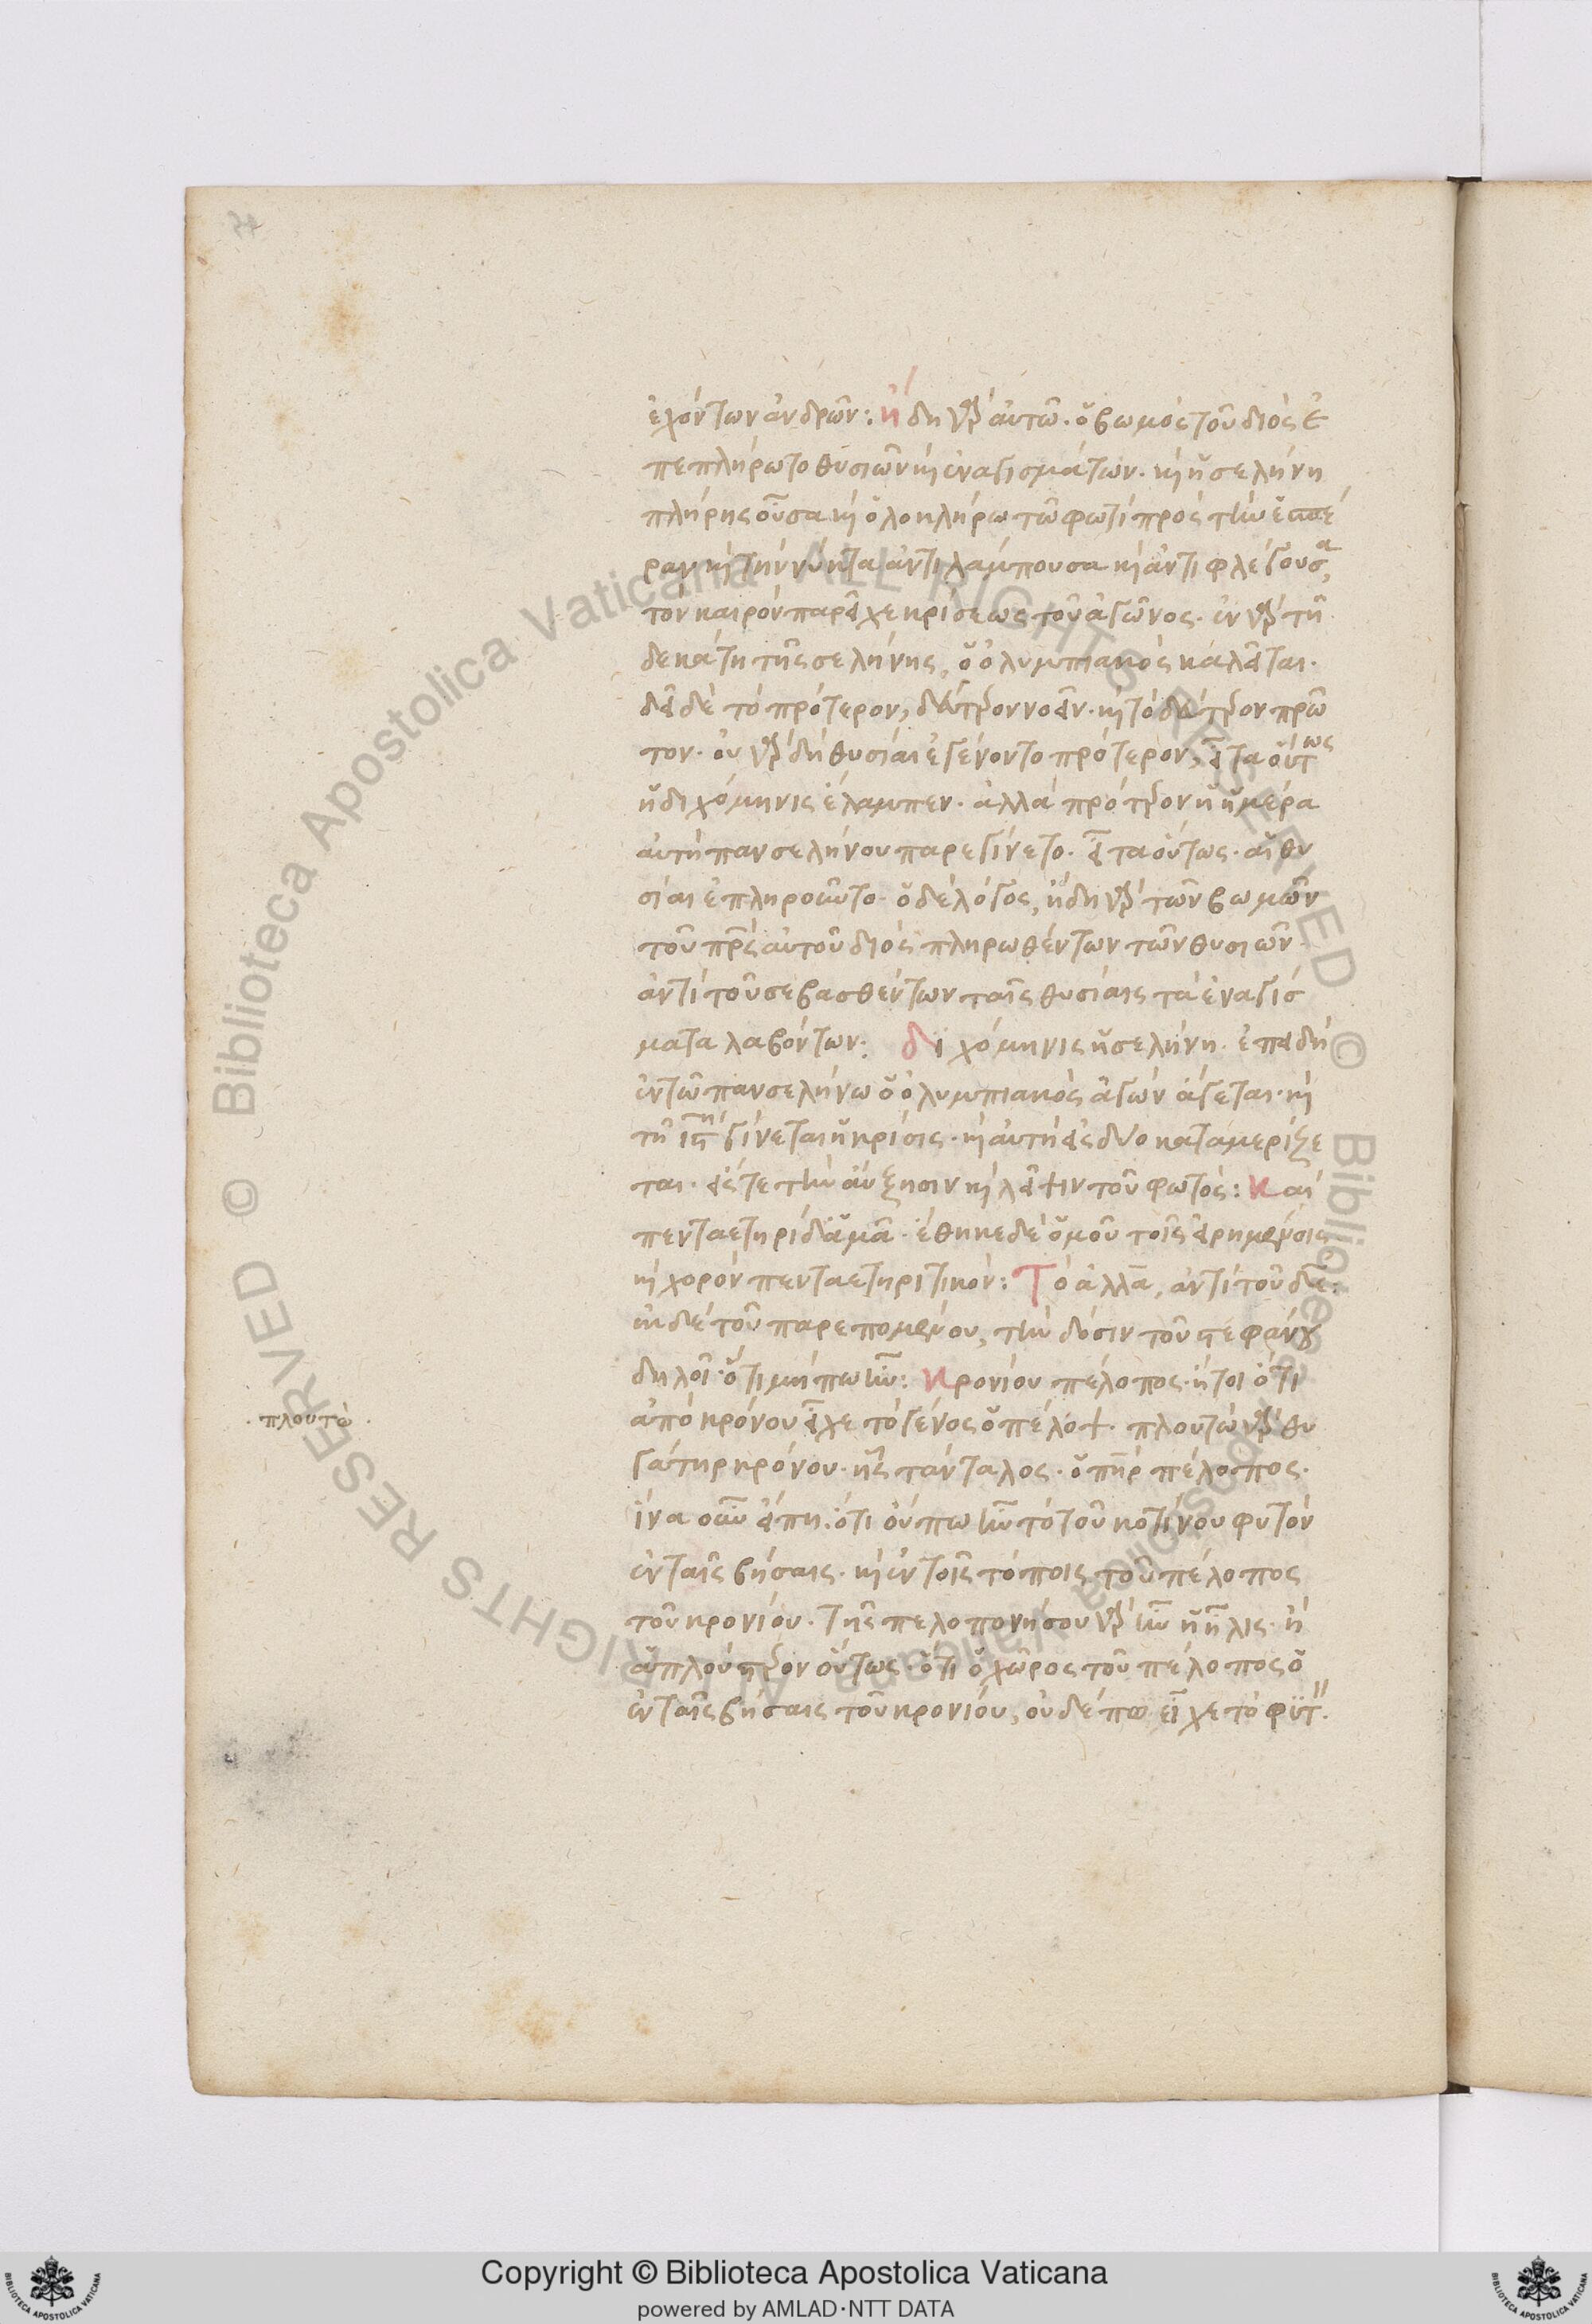 ἐχόντων ἀνδρῶν: ἤδη γὰρ αὐτῶ. ὁ βωμὸς τοῦ διὸς ἐ
πεπλήρωτο θυσιῶν καὶ ἐναγισμάτων. καὶ ἡ σελήνη
πλήρης οὖσα καὶ ὁλοκλήρω τῶ φωτὶ πρὸς τὴν ἑσπέ
ραν καὶ τὴν νύκτα ἀντιλάμπουσα καὶ ἀντιφλέγουσα,
τὸν καιρὸν παρεῖχε κρίσεως τοῦ ἀγῶνος. ἐν γὰρ τῆ
δεκάτη τῆς σελήνης, ὁ ὀλυμπιακὸς καλεῖται.
δεῖ δὲ τὸ πρότερον, δεύτερον νοεῖν. καὶ τὸ δεύτερον πρῶ
τον. οὐ γὰρ δὴ θυσίαι ἐγένοντο πρότερον, εἶτα οὕτως
ἡ διχόμηνις ἔλαμπεν. ἀλλὰ πρότερον ἡ ἡμέρα
αὐτὴ πανσελήνου παρεγίνετο. εἶτα οὕτως. αἱ θυ
σίαι ἐπληροῦντο. ὁ δὲ λόγος, ἤδη γὰρ τῶν βωμῶν
τοῦ πατρὸς αὐτοῦ διὸς πληρωθέντων τῶν θυσιῶν.
ἀντὶ τοῦ σεβασθέντων ταῖς θυσίαις τὰ ἐναγίσ
ματα λαβόντων: διχόμηνις ἡ σελήνη. ἐπειδὴ
ἐν τῶ πανσελήνω ὁ ὀλυμπιακὸς ἀγὼν ἄγεται. καὶ
τῆ ιςῃ γίνεται ἡ κρίσις. καὶ αὐτὴ εἰς δύο καταμερίζε
ται. εἴς τε τὴν αὔξησιν καὶ λεῖψιν τοῦ φωτός: καὶ
πενταετηρίδ' ἁμᾶ. ἔθηκε δὲ ὁμοῦ τοῖς εἰρημένοις
καὶ χορὸν πενταετηριτικόν: Τὸ ἀλλὰ, ἀντὶ τοῦ δέ:
ἐκ δὲ τοῦ παρεπομένου, τὴν δόσιν τοῦ στεφάνου
δηλοῖ. ὅτι μήπω ἦν: κρονίου πέλοπος. ἤτοι ὅτι
ἀπὸ κρόνου εἶχε τὸ γένος ὁ πέλοψ. πλουτὼ γὰρ θυ
γάτηρ κρόνου. ἧς τάνταλος. ὁ πατὴρ πέλοπος.
ἵνα οὖν εἴπη. ὅτι οὔπω ἦν τὸ τοῦ κοτίνου φυτὸν
ἐν ταῖς βήσαις. καὶ ἐν τοῖς τόποις τοῦ πέλοπος
τοῦ κρονίου. τῆς πελοπονήσου γὰρ ἦν ἡ ἦλις. ἢ
ἁπλούστερον οὕτως. ὅτι ὁ χῶρος τοῦ πέλοπος ὁ
ἐν ταῖς βήσαις τοῦ κρονίου, οὐδέπω εἶχε τὸ φυτ.
. πλουτώ .
Copyright © Biblioteca Apostolica Vaticana
powered by AMLAD·NTT DATA
© Biblioteca Apostolica Vaticana ALL RIGHTS RESERVED © Biblioteca Apostolica Vaticana ALL RIGHTS RESERVED